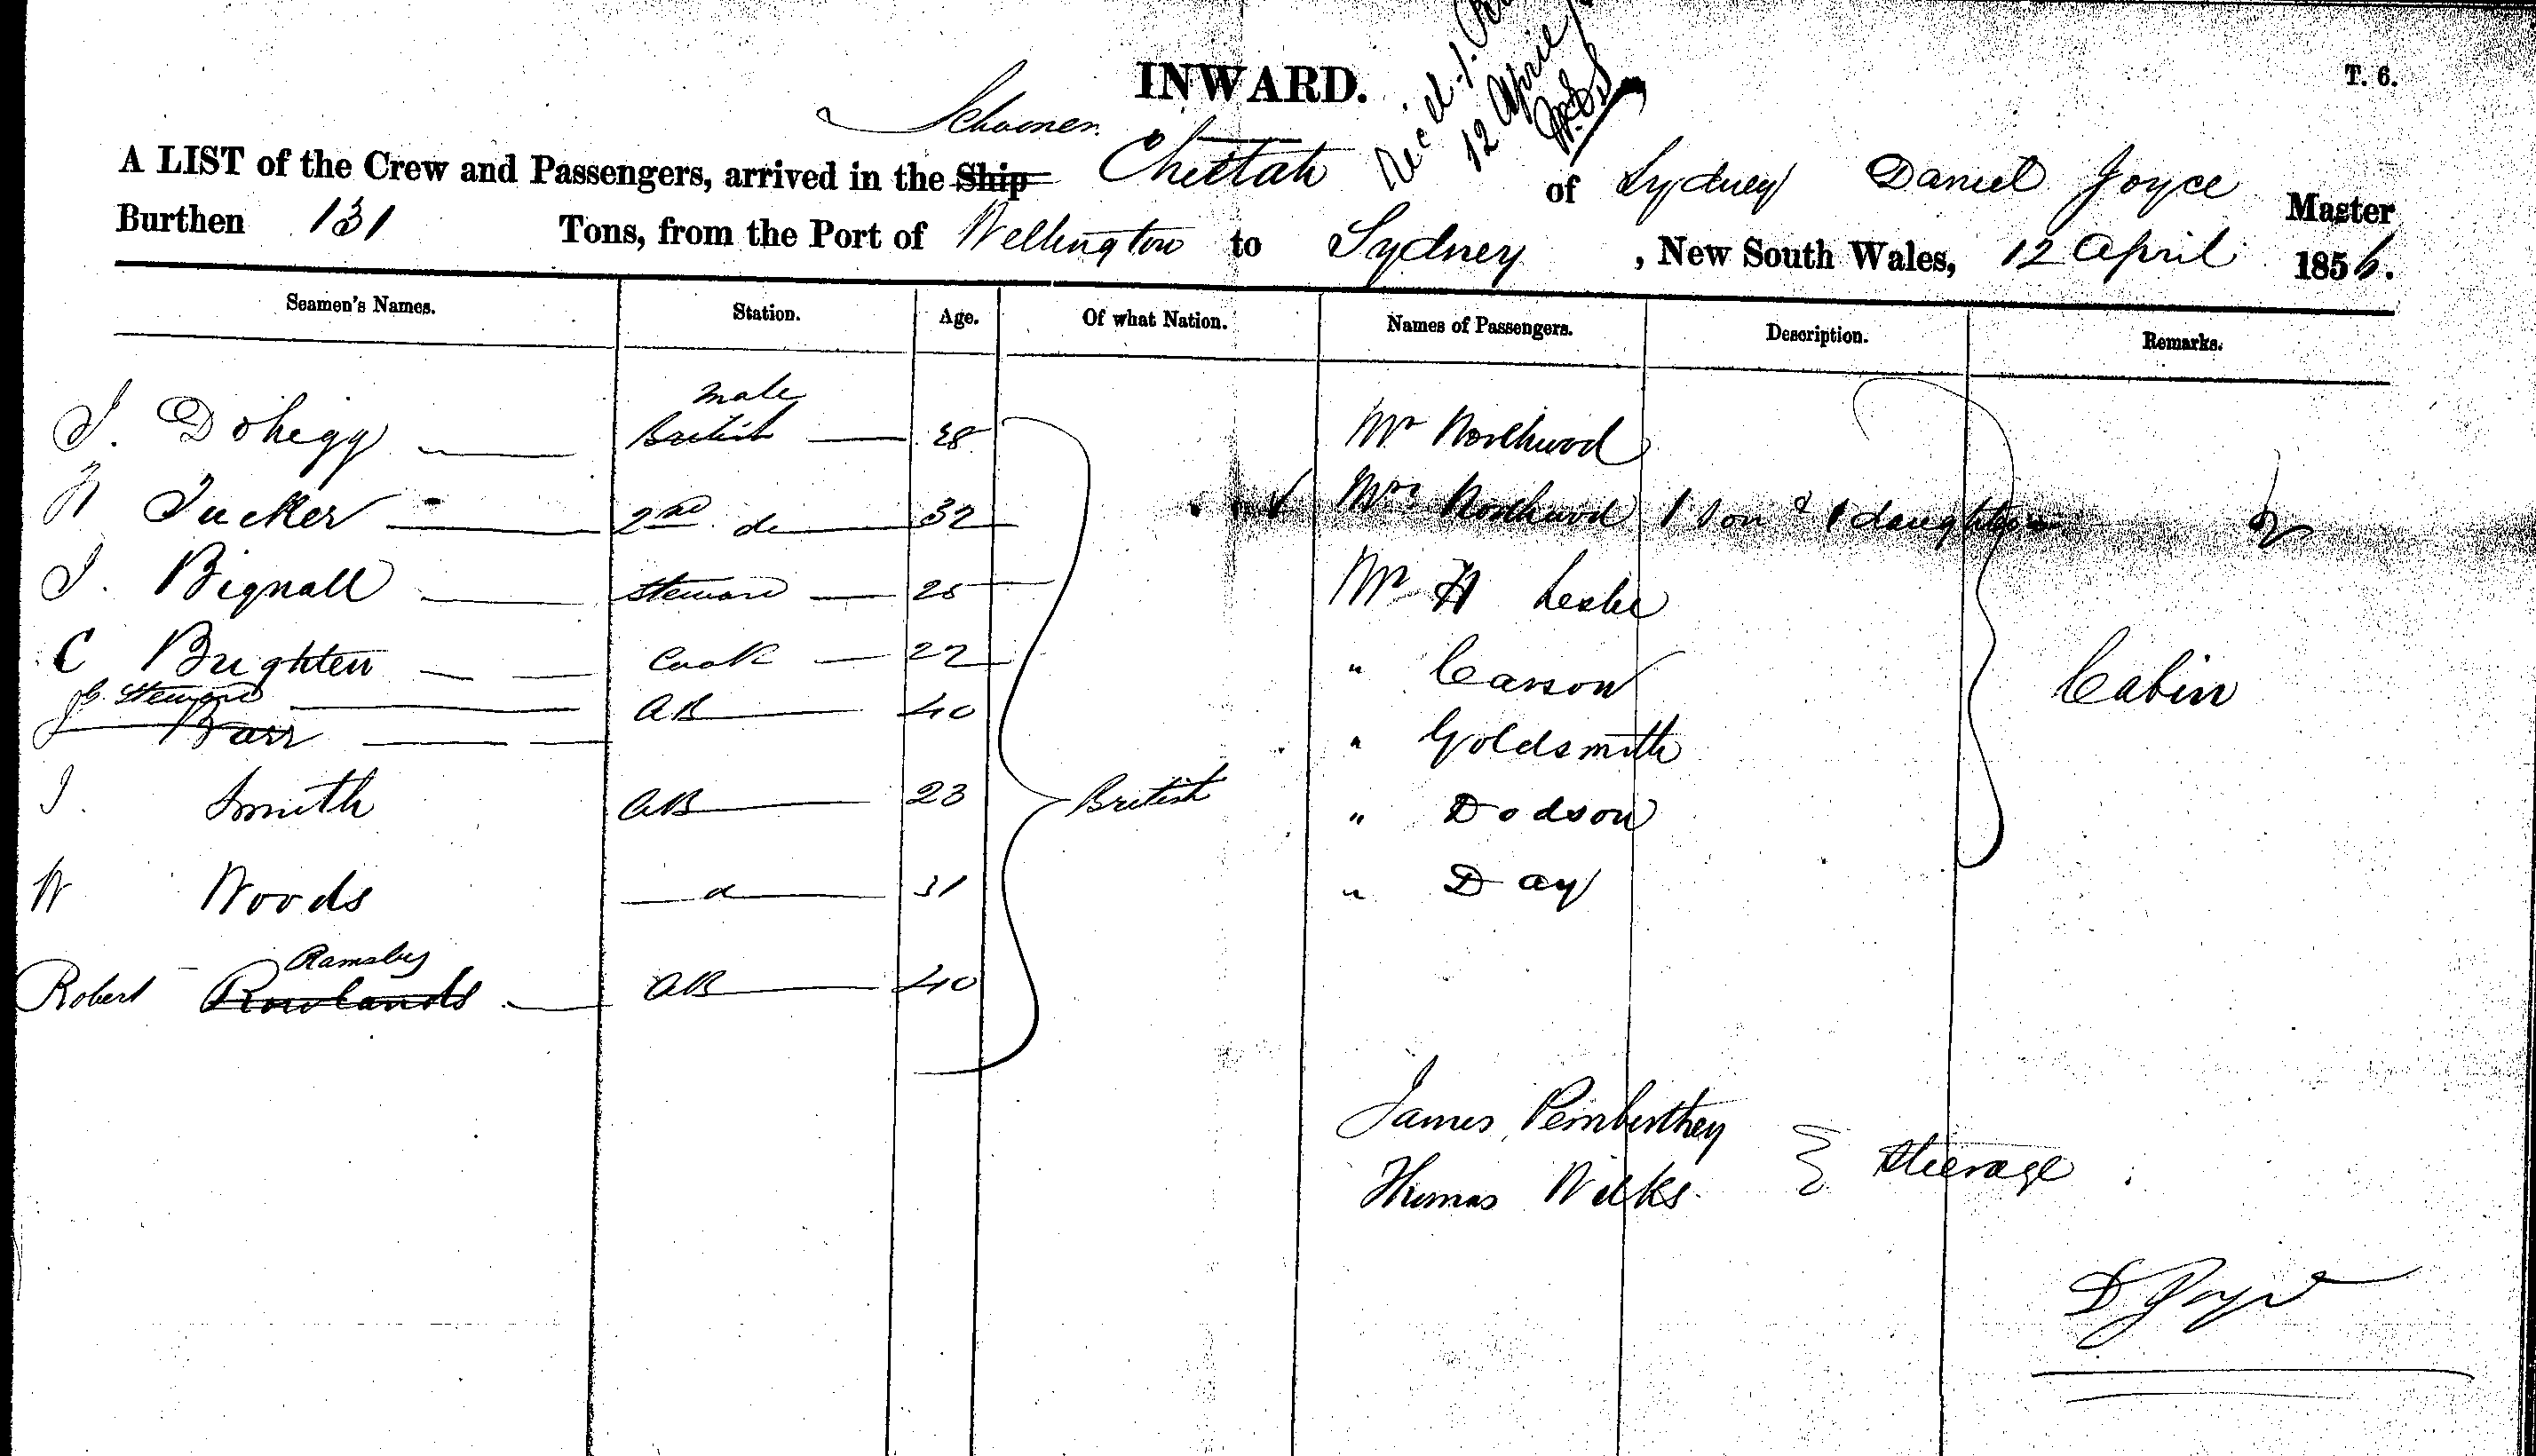 INWARD.
T. 6.
12 April
Schooner
A LIST of the Crew and Passengers, arrived in the Ship Cheetah of Sydney Daniel Joyce Master
Burthen 131 Tons, from the Port of Wellington to Sydney, New South Wales, 12 April 1856.
Seamen's Names. Station. Age. Of what Nation. Names of Passengers. Description. Remarks.
mate
J. Dohigg British 38 Mr Northwood
Tucker 2nd do 32 Mrs Northwood 1 son & 1 daughter
J. Bignall Steward 25 Mr H Leslie
C Brighten Cook 22 " Carson Cabin
J. Steward AB 40
Barr " Goldsmith
J. Smith AB 23 British " Dodson
W Woods d 31 " Day
Ramsby
Robert Rowlands AB 40
James Pemberthey
Thomas Wilks. Steerage
D Joyce